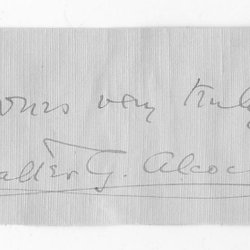 yours very truly
Walter G. Alcock